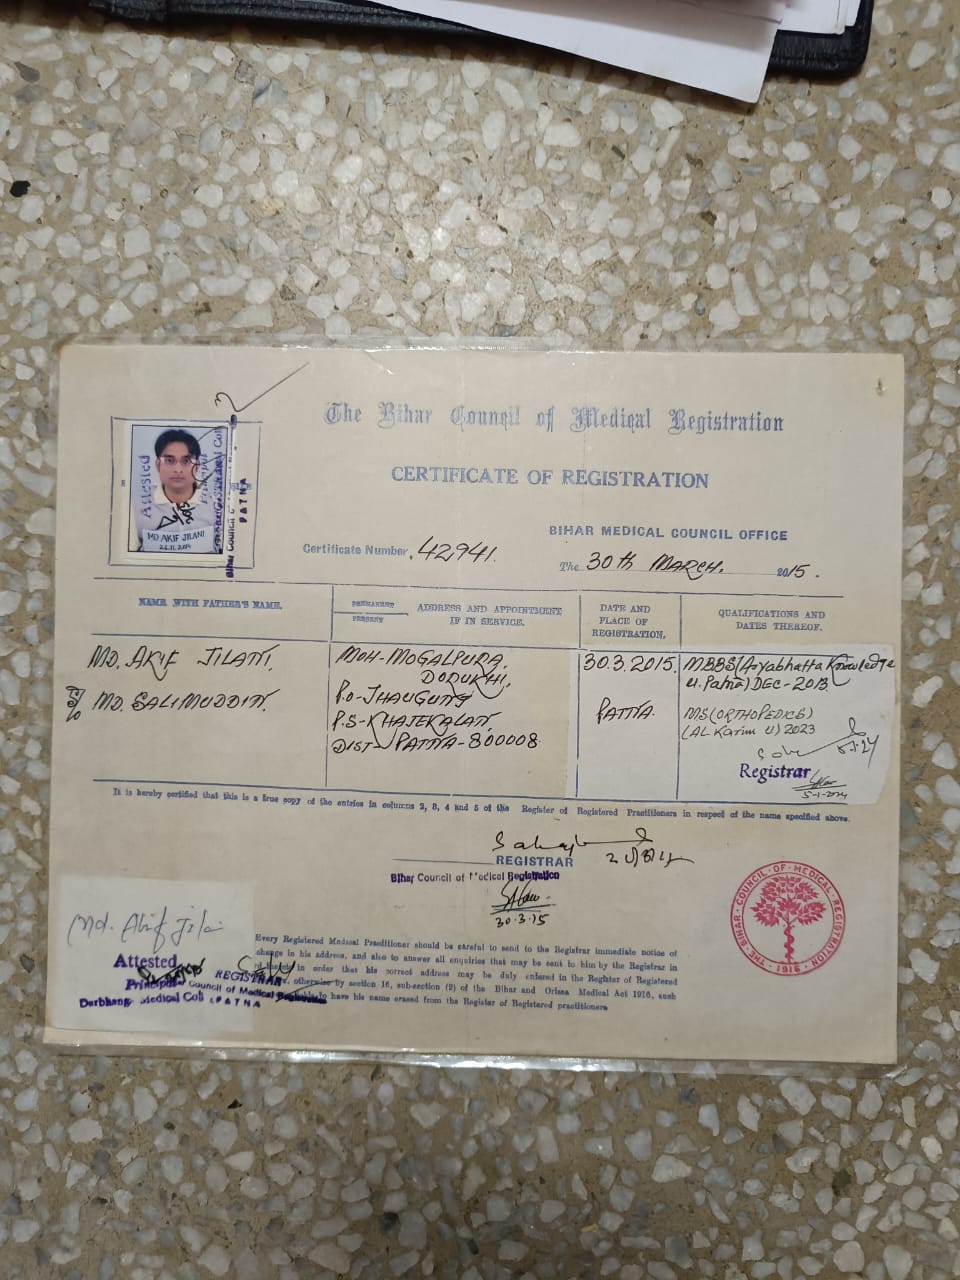 The Bihar Council of Medical Registration
CERTIFICATE OF REGISTRATION
BIHAR MEDICAL COUNCIL OFFICE
Certificate Number. 42941.
The 30th MARCH. 2015.
Attested
MD AKIF JILANI
24.11.2014
Bihar Council
PATNA
NAME WITH FATHER'S NAME.
PERMANENT
PRESENT
ADDRESS AND APPOINTMENT
IF IN SERVICE.
DATE AND
PLACE OF
REGISTRATION.
QUALIFICATIONS AND
DATES THEREOF.
MD. AKIF JILANI.
S/o MD. SALIMUDDIN.
MOH-MOGALPURA,
DORUKHI,
P.O-JHAUGUNJ
P.S-KHAJEKALAN
DIST PATNA-800008
30.3.2015.
PATNA.
MBBS(Aryabhatta Knowledge
U. Patna) DEC-2013
MS(ORTHOPEDICS)
(AL Karim U) 2023
Registrar
5-1-2024
It is hereby certified that this is a true copy of the entries in columns 2, 3, 4 and 5 of the Register of Registered Practitioners in respect of the name specified above.
REGISTRAR
Bihar Council of Medical Registration
30.3.15
THE BIHAR COUNCIL OF MEDICAL REGISTRATION
1916
Md. Akif Jilani
Attested
Principal
Darbhanga Medical Coll
REGISTRAR
Council of Medical Registration
PATNA
Every Registered Medical Practitioner should be careful to send to the Registrar immediate notice of
change in his address, and also to answer all enquiries that may be sent to him by the Registrar in
in order that his correct address may be duly entered in the Register of Registered
otherwise by section 16, sub-section (2) of the Bihar and Orissa Medical Act 1916, such
to have his name erased from the Register of Registered practitioners